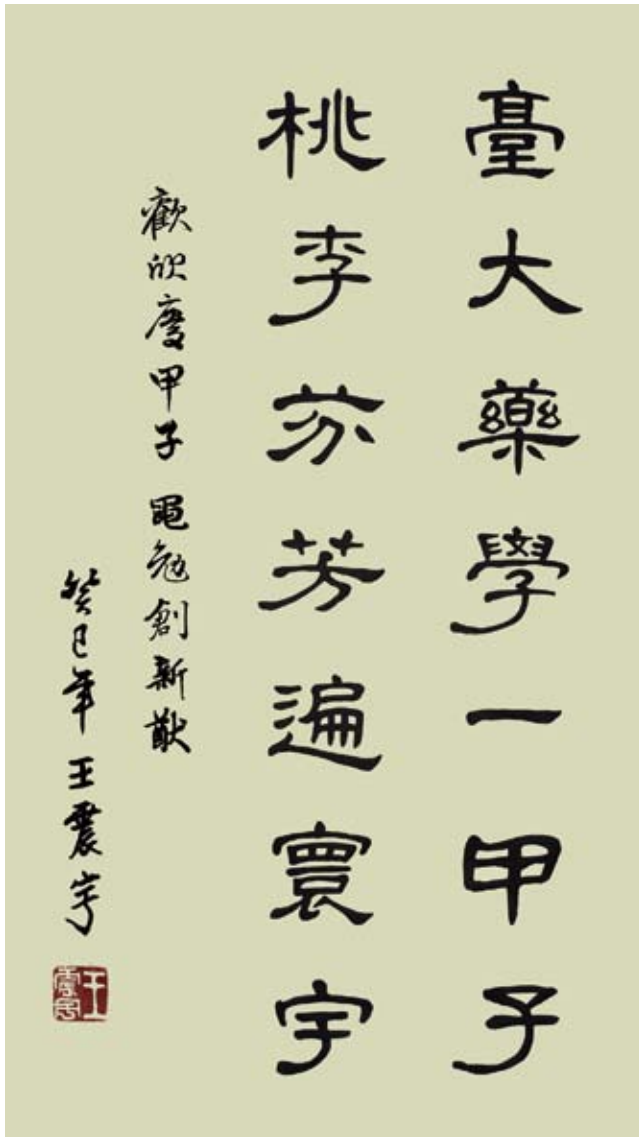 臺大藥學一甲子
桃李芬芳遍寰宇
歡欣慶甲子 黽勉創新猷
癸巳年 王震宇